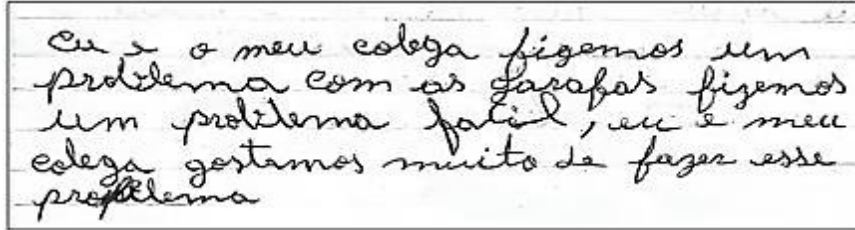 eu e o meu colega fizemos um
problema com as garafas fizemos
um problema facil, eu e meu
colega gostamos muito de fazer esse
problema